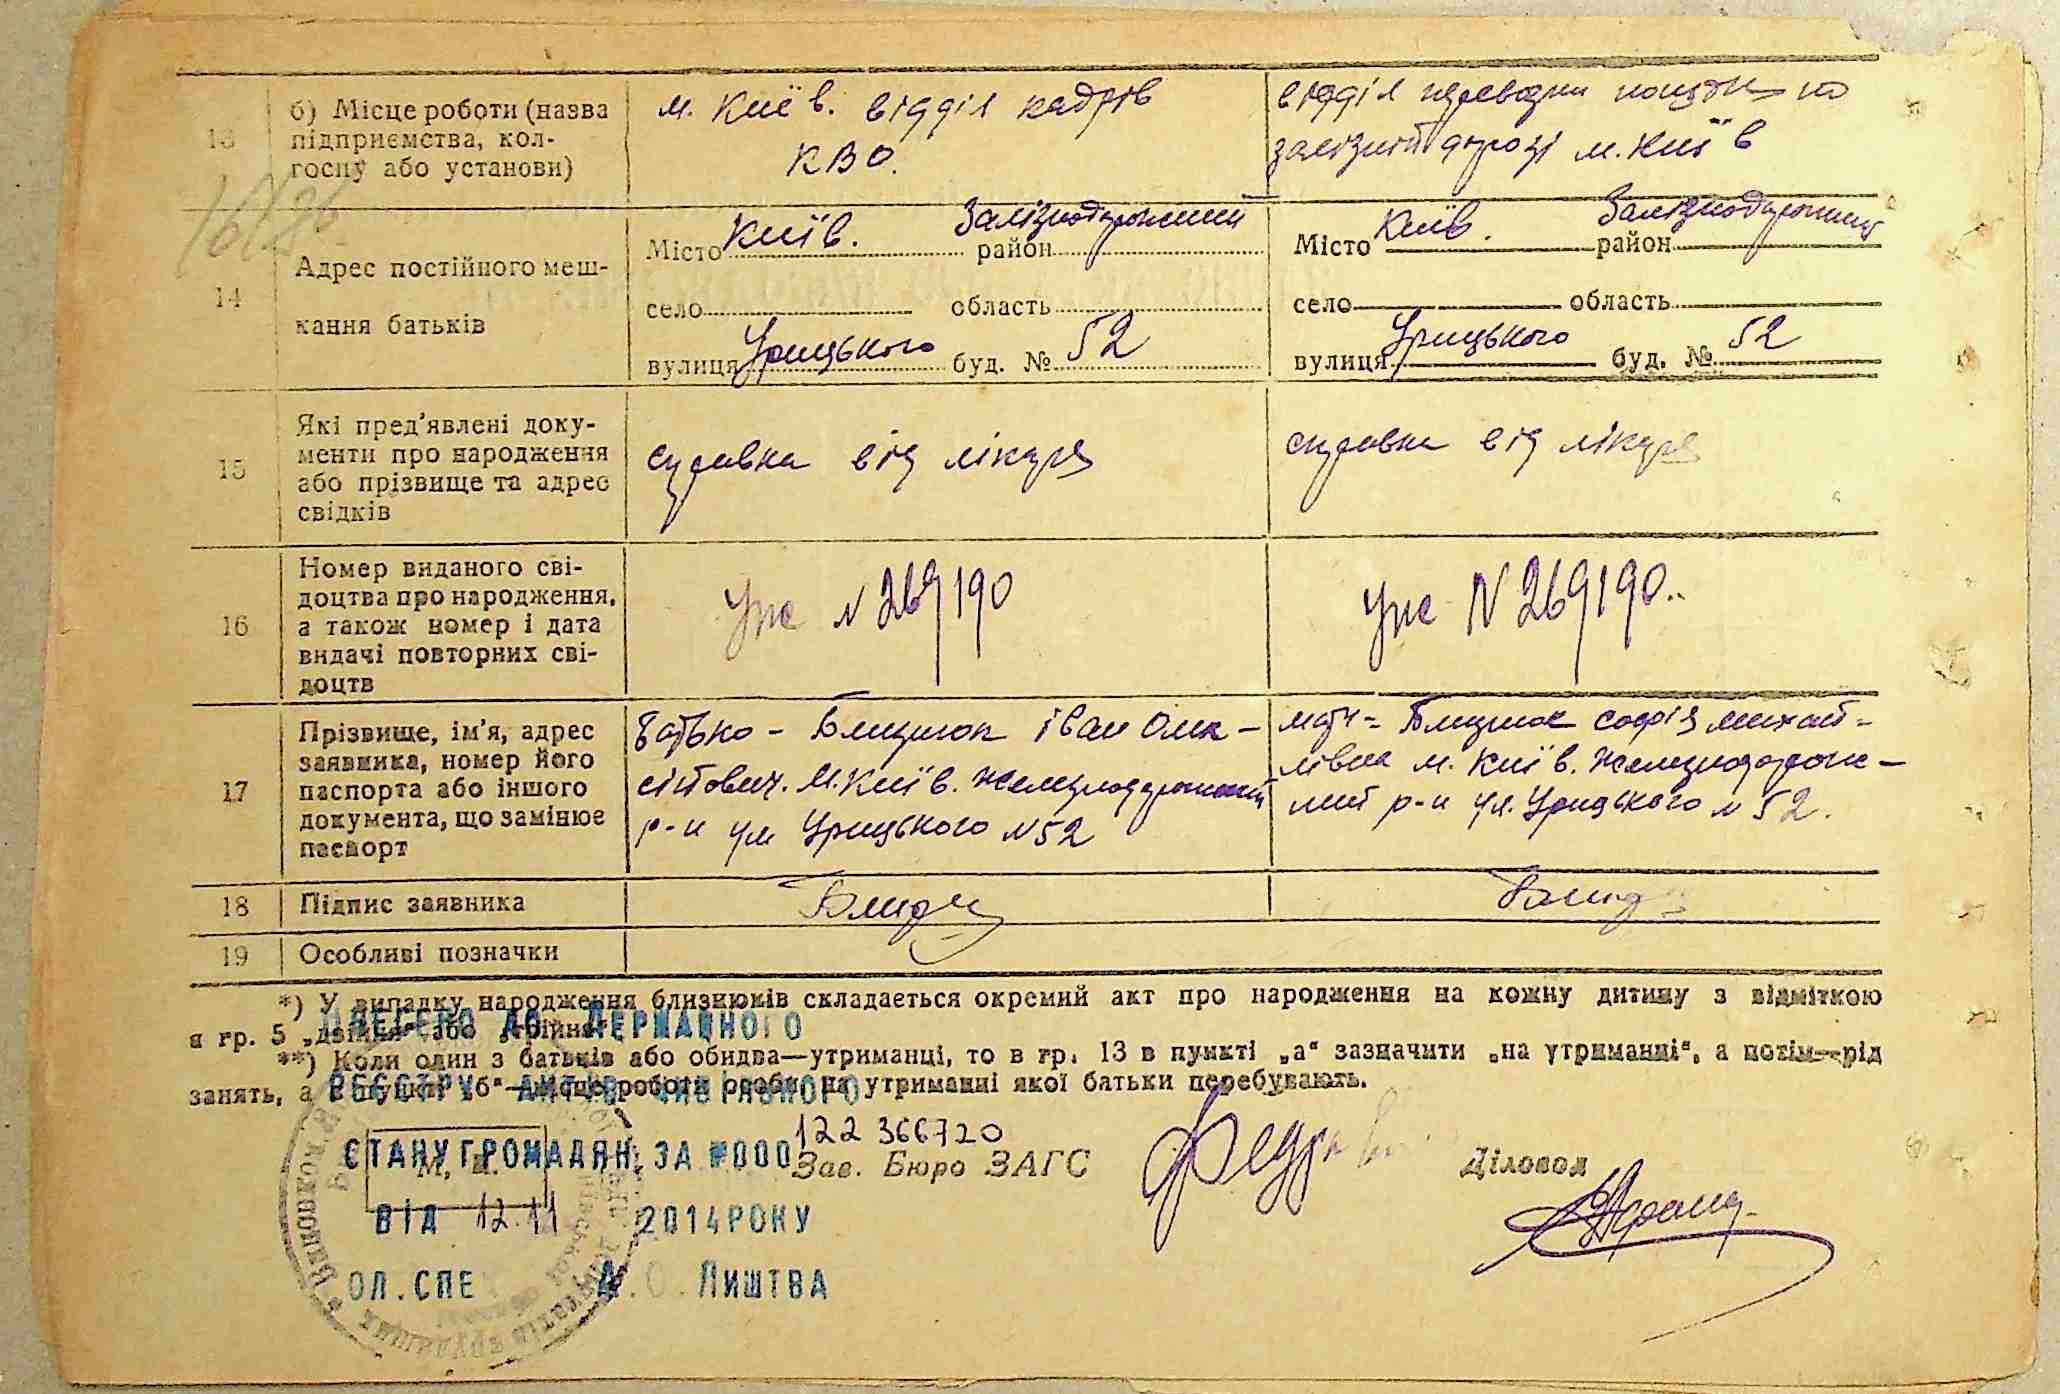 13
б) Місце роботи (назва
підприємства, кол-
госпу або установи)
м. Київ. відділ кадрів
КВО.
відділ
залізній дорозі м. Київ
14
Адрес постійного меш-
кання батьків
Місто Київ. район Залізнодорожний
село область
вулиця Урицького буд. № 52
Місто Київ. район Залізнодорожний
село область
вулиця Урицького буд. № 52
15
Які пред'явлені доку-
менти про народження
або прізвище та адрес
свідків
справка від лікаря
справка від лікаря
16
Номер виданого сві-
доцтва про народження,
а також номер і дата
видачі повторних сві-
доцтв
N 269190
N 269190..
17
Прізвище, ім'я, адрес
заявника, номер його
паспорта або іншого
документа, що замінює
паспорт
Батько - Іван Олек-
сійович. М. Київ. Железнодорожний
р-н ул Урицького N 52
мати = Софія михай-
лівна м. Київ. Железнодорож-
ний р-н ул. Урицького N 52.
18
Підпис заявника
19
Особливі позначки
*) У випадку народження близнюків складається окремий акт про народження на кожну дитину з відміткою
я гр. 5 „двійня" або „трійня"
**) Коли один з батьків або обидва—утриманці, то в гр. 13 в пункті „а" зазначити „на утриманні", а потім—рід
занять, а в пункті „б"—місце роботи особи, на утриманні якої батьки перебувають.
ВНЕСЕНО ДО ДЕРЖАВНОГО
РЕЄСТРУ АКТІВ ЦИВІЛЬНОГО
СТАНУ ГРОМАДЯН ЗА №000 122 366720
М. П.
Зав. Бюро ЗАГС
Діловод
ВІД 12.11 2014 РОКУ
ОЛ. СПЕ А. О. ЛИШТВА